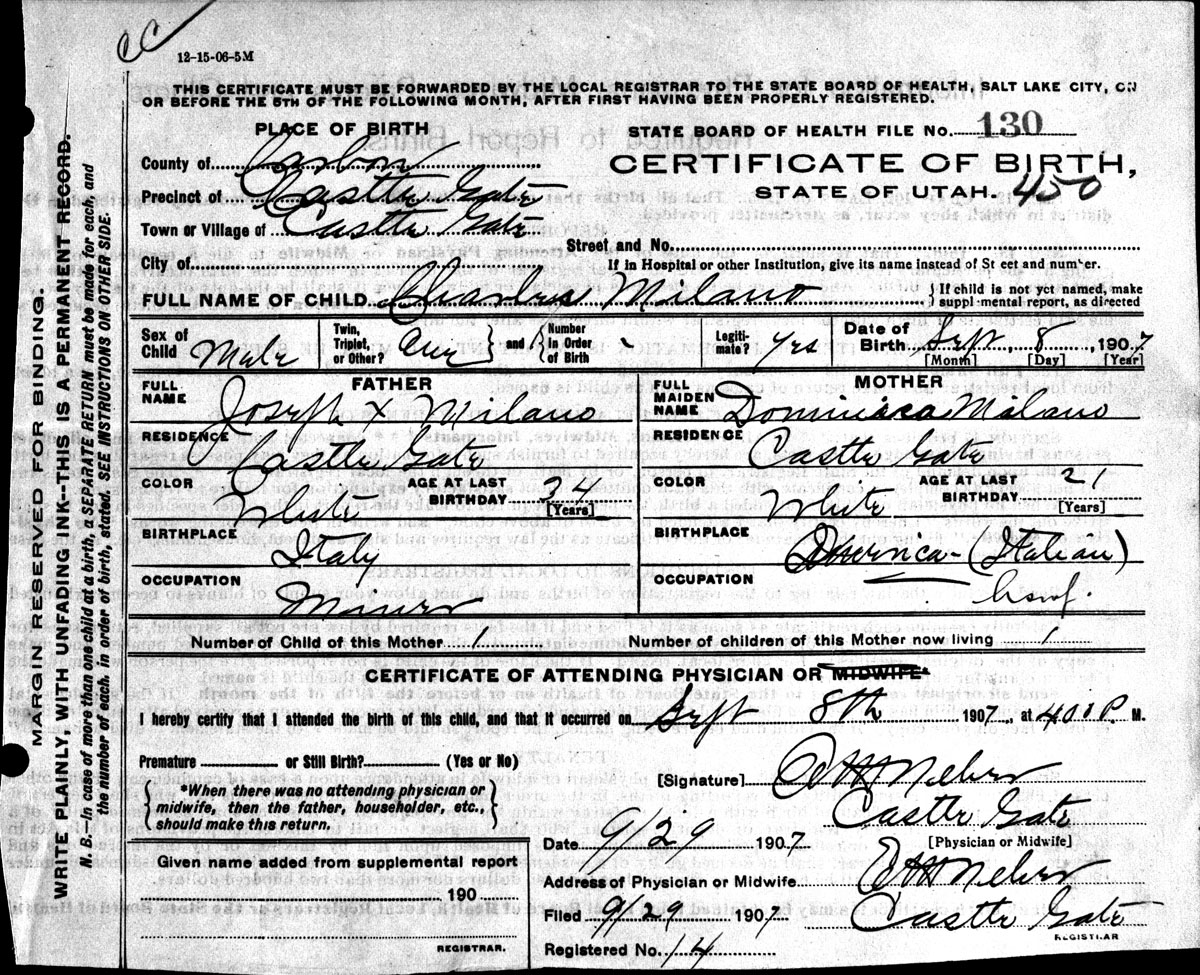 CC
12-15-06-5M
THIS CERTIFICATE MUST BE FORWARDED BY THE LOCAL REGISTRAR TO THE STATE BOARD OF HEALTH, SALT LAKE CITY, ON
OR BEFORE THE 5TH OF THE FOLLOWING MONTH, AFTER FIRST HAVING BEEN PROPERLY REGISTERED.
PLACE OF BIRTH
STATE BOARD OF HEALTH FILE No. 130
County of Carbon
CERTIFICATE OF BIRTH,
Precinct of Castle Gate
STATE OF UTAH. 450
Town or Village of Castle Gate
Street and No.
City of
If in Hospital or other Institution, give its name instead of St eet and number.
FULL NAME OF CHILD Charles Milano
} If child is not yet named, make
suppl mental report, as directed
Sex of Child Male
Twin, Triplet, or Other? One } and { Number in Order of Birth
Legiti-mate? yes
Date of Birth Sept, 8, 1907
[Month] [Day] [Year]
FATHER
FULL NAME Joseph X Milano
RESIDENCE Castle Gate
COLOR White
AGE AT LAST BIRTHDAY 34
[Years]
BIRTHPLACE Italy
OCCUPATION Miner
MOTHER
FULL MAIDEN NAME Dominica Milano
RESIDENCE Castle Gate
COLOR White
AGE AT LAST BIRTHDAY 21
[Years]
BIRTHPLACE America - (Italian)
OCCUPATION hswf.
Number of Child of this Mother 1
Number of children of this Mother now living 1
CERTIFICATE OF ATTENDING PHYSICIAN OR MIDWIFE*
I hereby certify that I attended the birth of this child, and that it occurred on Sept 8th 1907, at 400 P. M.
Premature or Still Birth? (Yes or No)
{ *When there was no attending physician or
midwife, then the father, householder, etc.,
should make this return. }
[Signature]
Castle Gate
Date 9/29 1907
[Physician or Midwife]
Given name added from supplemental report
190
REGISTRAR.
Address of Physician or Midwife
Filed 9/29 1907
Castle Gate
REGISTRAR
Registered No. 14
MARGIN RESERVED FOR BINDING.
WRITE PLAINLY, WITH UNFADING INK--THIS IS A PERMANENT RECORD.
N. B.—In case of more than one child at a birth, a SEPARATE RETURN must be made for each, and
the number of each. in order of birth, stated. SEE INSTRUCTIONS ON OTHER SIDE.